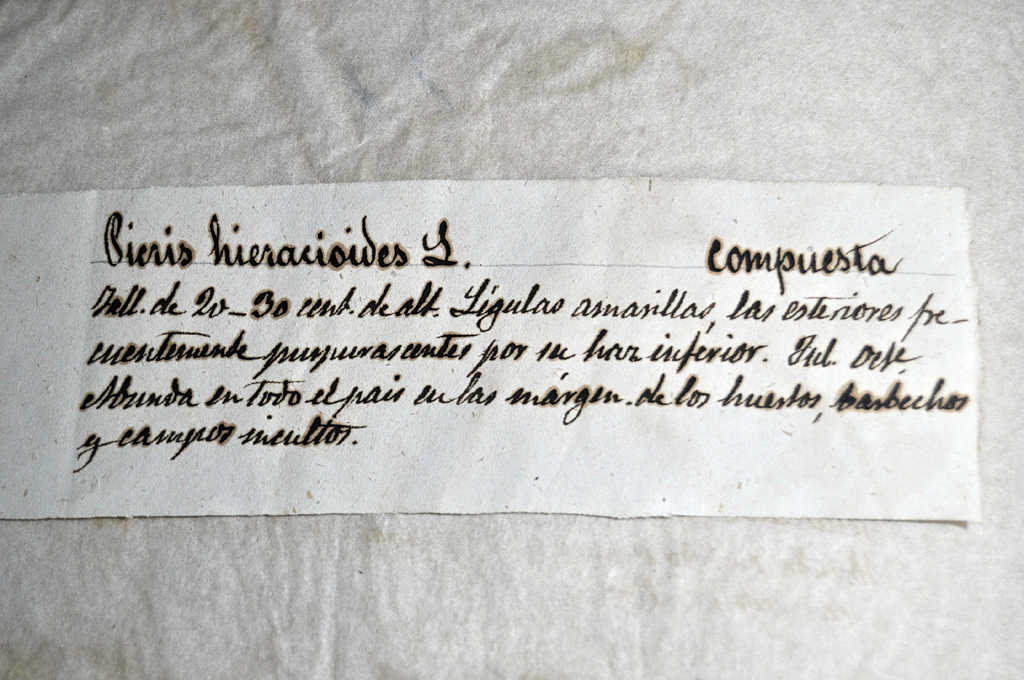 Picris hieracioides L. compuesta
Tall. de 20–30 cent. de alt. Lígulas amarillas, las esteriores fre-
cuentemente purpurascentes por su haz inferior. Jul. Oct.
Abunda en todo el pais en las márgen. de los huertos, barbechos
y campos incultos.